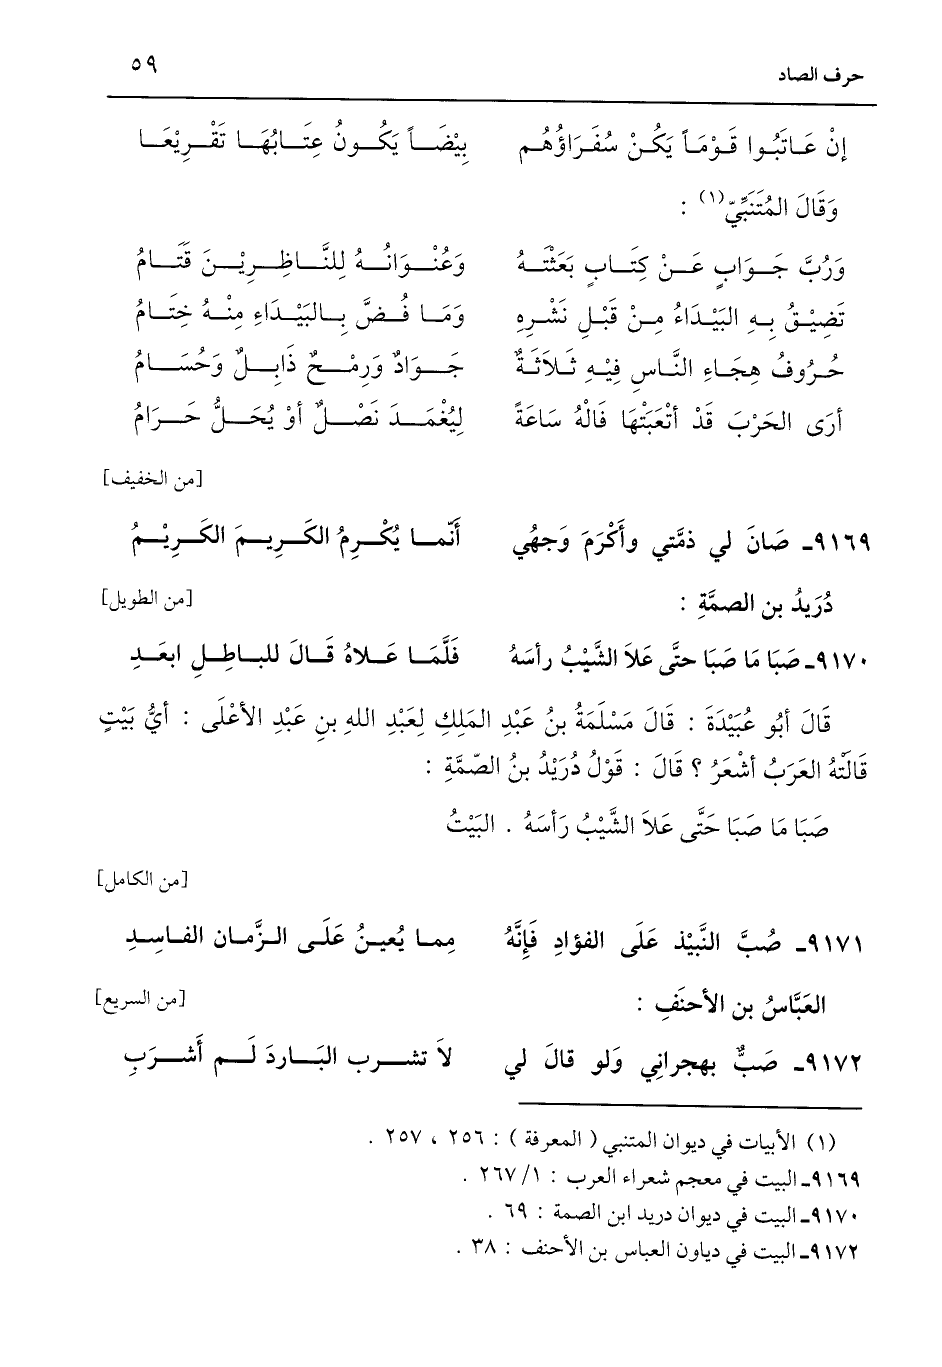 حرف الصاد ٥٩
إنْ عَاتَبُوا قَوْمَاً يَكُنْ سُفَرَاؤُهُم بِيْضَاً يَكُونُ عِتَابُهَا تَقْرِيْعَا
وَقَالَ المُتَنَبِّيّ(١) :
وَرُبَّ جَوَابٍ عَنْ كِتَابٍ بَعَثْتَهُ وَعُنْوَانُهُ لِلنَّاظِرِيْنَ قَتَامُ
تَضِيْقُ بِهِ البَيْدَاءُ مِنْ قَبْلِ نَشْرِهِ وَمَا فُضَّ بِالبَيْدَاءِ مِنْهُ خِتَامُ
حُرُوفُ هِجَاءِ النَّاسِ فِيْهِ ثَلاَثَةٌ جَوَادٌ وَرُمْحٌ ذَابِلٌ وَحُسَامُ
أرَى الحَرْبَ قَدْ أتْعَبْتَهَا فَالْهُ سَاعَةً لِيُغْمَدَ نَصْلٌ أوْ يُحَلُّ حَرَامُ
[من الخفيف]
٩١٦٩ـ صَانَ لي ذمَّتي وأَكْرَمَ وَجهُي أَنّما يُكْرِمُ الكَرِيمَ الكَرِيْمُ
دُرَيدُ بن الصمَّةِ : [من الطويل]
٩١٧٠ـ صَبَا مَا صَبَا حتَّى عَلاَ الشَّيْبُ رأسَهُ فَلَّمَا عَلاهُ قَالَ للباطِلِ ابعَدِ
قَالَ أبُو عُبَيْدَةَ : قَالَ مَسْلَمَةُ بنُ عَبْدِ المَلِكِ لِعَبْدِ اللهِ بنِ عَبْدِ الأعْلَى : أيُّ بَيْتٍ
قَالَتْهُ العَرَبُ أشْعَرُ ؟ قَالَ : قَوْلُ دُرَيْدُ بنُ الصّمَّةِ :
صَبَا مَا صَبَا حَتَّى عَلاَ الشَّيْبُ رَأسَهُ . البَيْتُ
[من الكامل]
٩١٧١ـ صُبَّ النَّبيْذ عَلَى الفؤادِ فَإِنَّهُ مِما يُعينُ عَلَى الزَّمان الفاسِدِ
العَبَّاسُ بن الأحنَفِ : [من السريع]
٩١٧٢ـ صَبٌّ بهجراني وَلو قالَ لي لاَ تشرب البَاردَ لَم أَشرَبِ
(١) الأبيات في ديوان المتنبي ( المعرفة ) : ٢٥٦ ، ٢٥٧ .
٩١٦٩ـ البيت في معجم شعراء العرب : ١/ ٢٦٧ .
٩١٧٠ـ البيت في ديوان دريد ابن الصمة : ٦٩ .
٩١٧٢ـ البيت في دياون العباس بن الأحنف : ٣٨ .